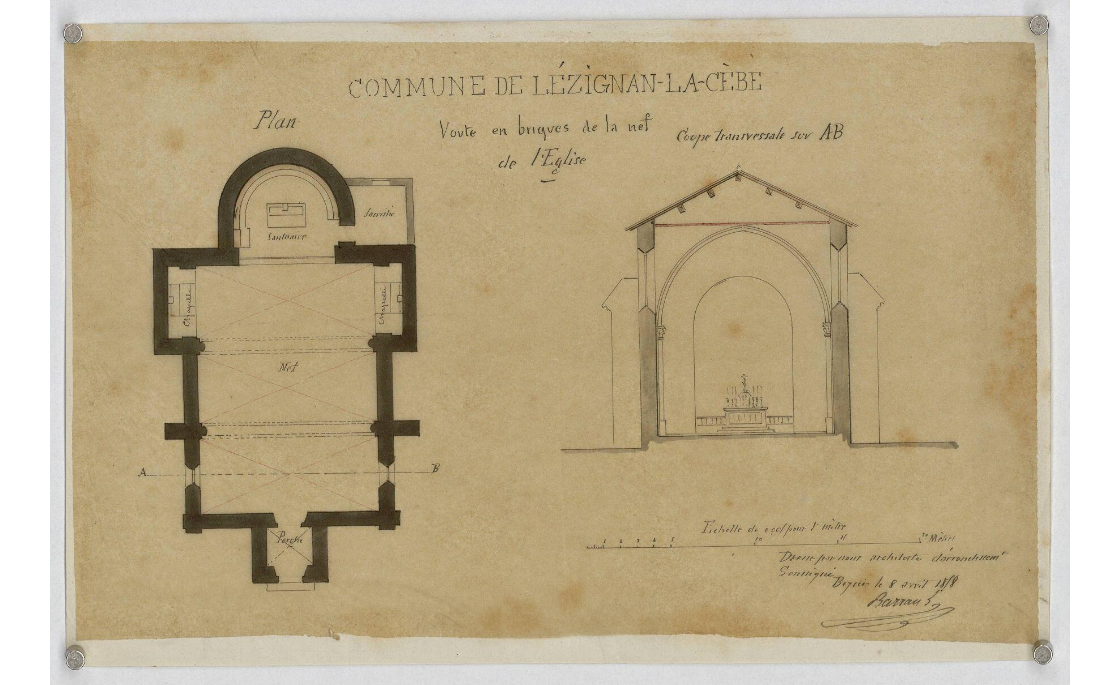 COMMUNE DE LÉZIGNAN-LA-CÈBE
Plan
Voute en briques de la nef
de l'Eglise
Coupe transversale sur AB
Sacristie
Sanctuaire
Chapelle
Chapelle
Nef
A
B
Porche
Echelle de pour 1 mètre
Dressé par nous architecte d'arrondissemt
Soussigné
le 8 avril